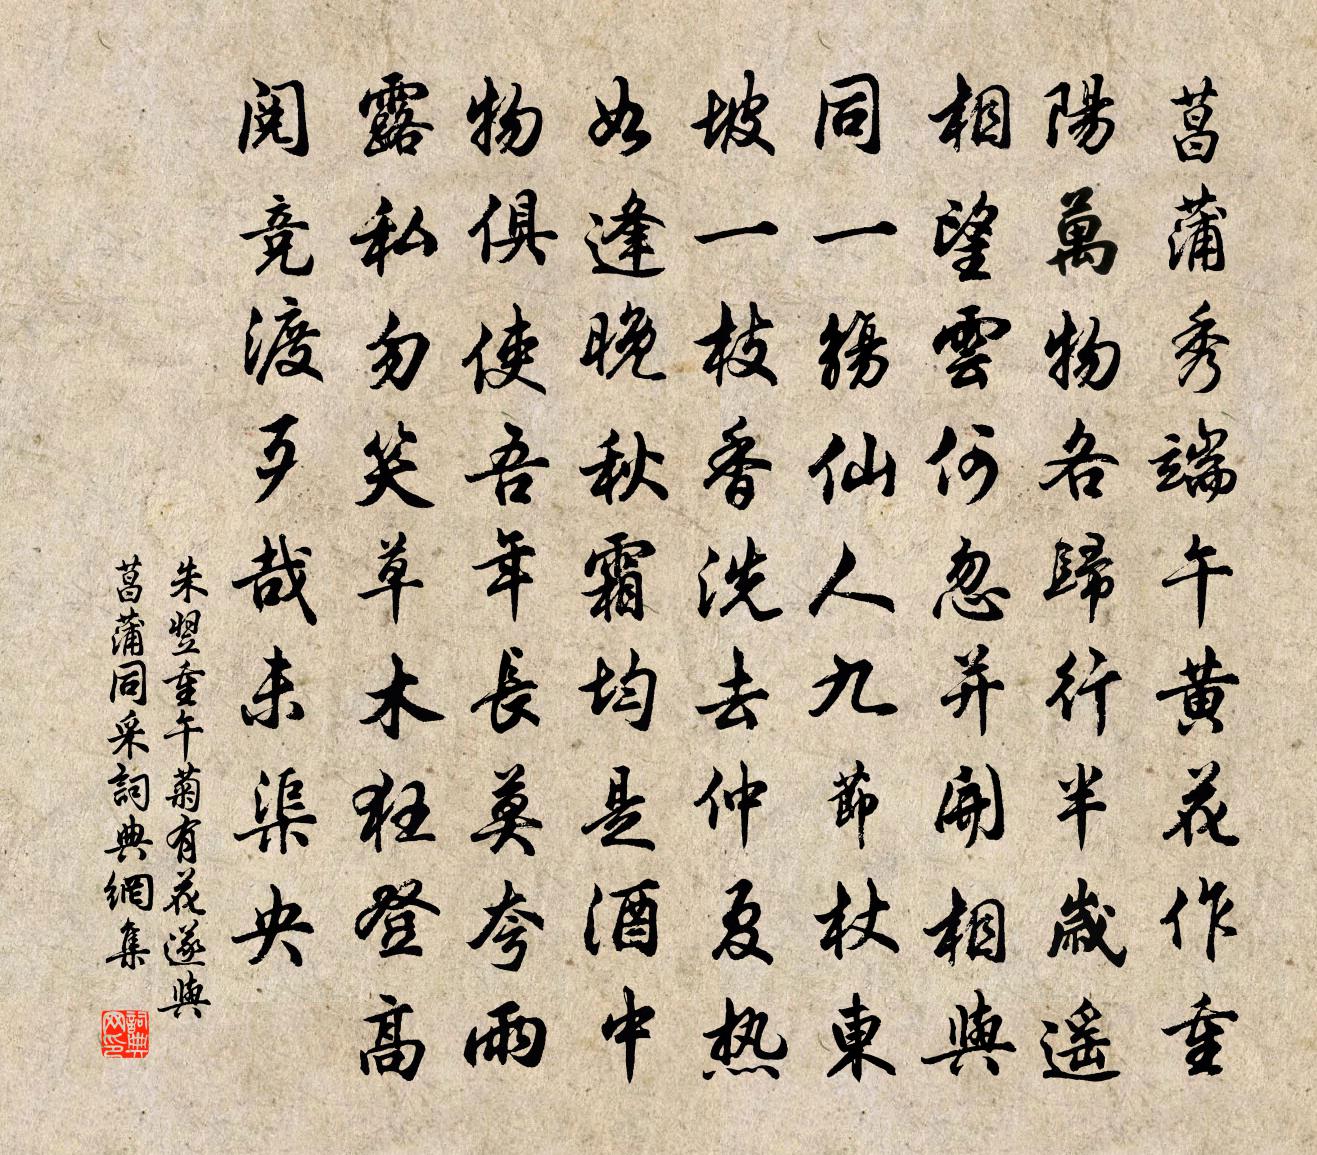 菖蒲秀端午黄花作重
陽萬物各歸行半歲遥
相望雲何忽并開相與
同一觴仙人九節杖東
坡一枝香洗去仲夏热
如逢晚秋霜均是酒中
物俱使吾年長莫夸雨
露私勿笑草木狂登高
閱竞渡歹哉未渠央
朱翌重午菊有花遂與
菖蒲同采詞典網集
詞典
网印